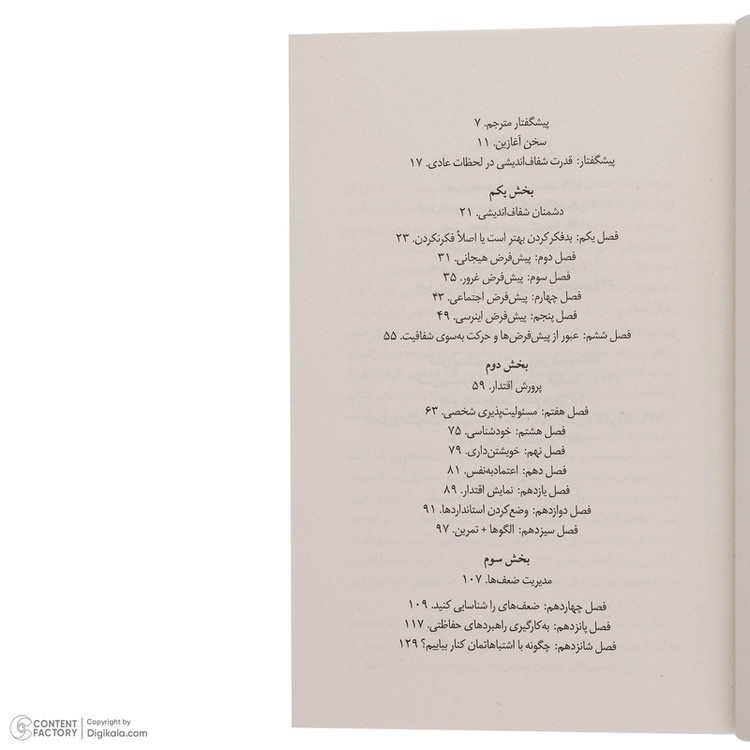 پیشگفتار مترجم. ۷
سخن آغازین. ۱۱
پیشگفتار: قدرت شفاف‌اندیشی در لحظات عادی. ۱۷
بخش یکم
دشمنان شفاف‌اندیشی. ۲۱
فصل یکم: بدفکرکردن بهتر است یا اصلاً فکرنکردن. ۲۳
فصل دوم: پیش‌فرض هیجانی. ۳۱
فصل سوم: پیش‌فرض غرور. ۳۵
فصل چهارم: پیش‌فرض اجتماعی. ۴۳
فصل پنجم: پیش‌فرض اینرسی. ۴۹
فصل ششم: عبور از پیش‌فرض‌ها و حرکت به‌سوی شفافیت. ۵۵
بخش دوم
پرورش اقتدار. ۵۹
فصل هفتم: مسئولیت‌پذیری شخصی. ۶۳
فصل هشتم: خودشناسی. ۷۵
فصل نهم: خویشتن‌داری. ۷۹
فصل دهم: اعتمادبه‌نفس. ۸۱
فصل یازدهم: نمایش اقتدار. ۸۹
فصل دوازدهم: وضع‌کردن استانداردها. ۹۱
فصل سیزدهم: الگوها + تمرین. ۹۷
بخش سوم
مدیریت ضعف‌ها. ۱۰۷
فصل چهاردهم: ضعف‌های را شناسایی کنید. ۱۰۹
فصل پانزدهم: به‌کارگیری راهبردهای حفاظتی. ۱۱۷
فصل شانزدهم: چگونه با اشتباهاتمان کنار بیاییم؟ ۱۲۹
CONTENT FACTORY
Copyright by
Digikala.com